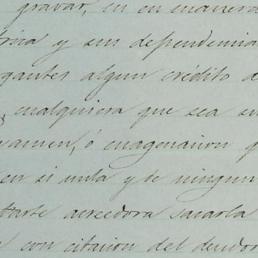 gravar, ni en manera
y sus dependencia
gantes algun crédito d
cualquiera que sea su
amen, ó enagenacion q
en si nula y de ningun
tarte acreedora sacarla
con citacion del deudor